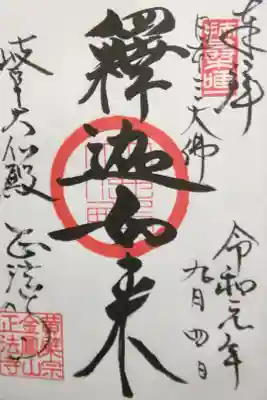 奉拜
日本三大佛
令和元年
九月四日
釋迦如来
岐阜大仏殿
正法寺
黄檗宗
金鳳山
正法寺